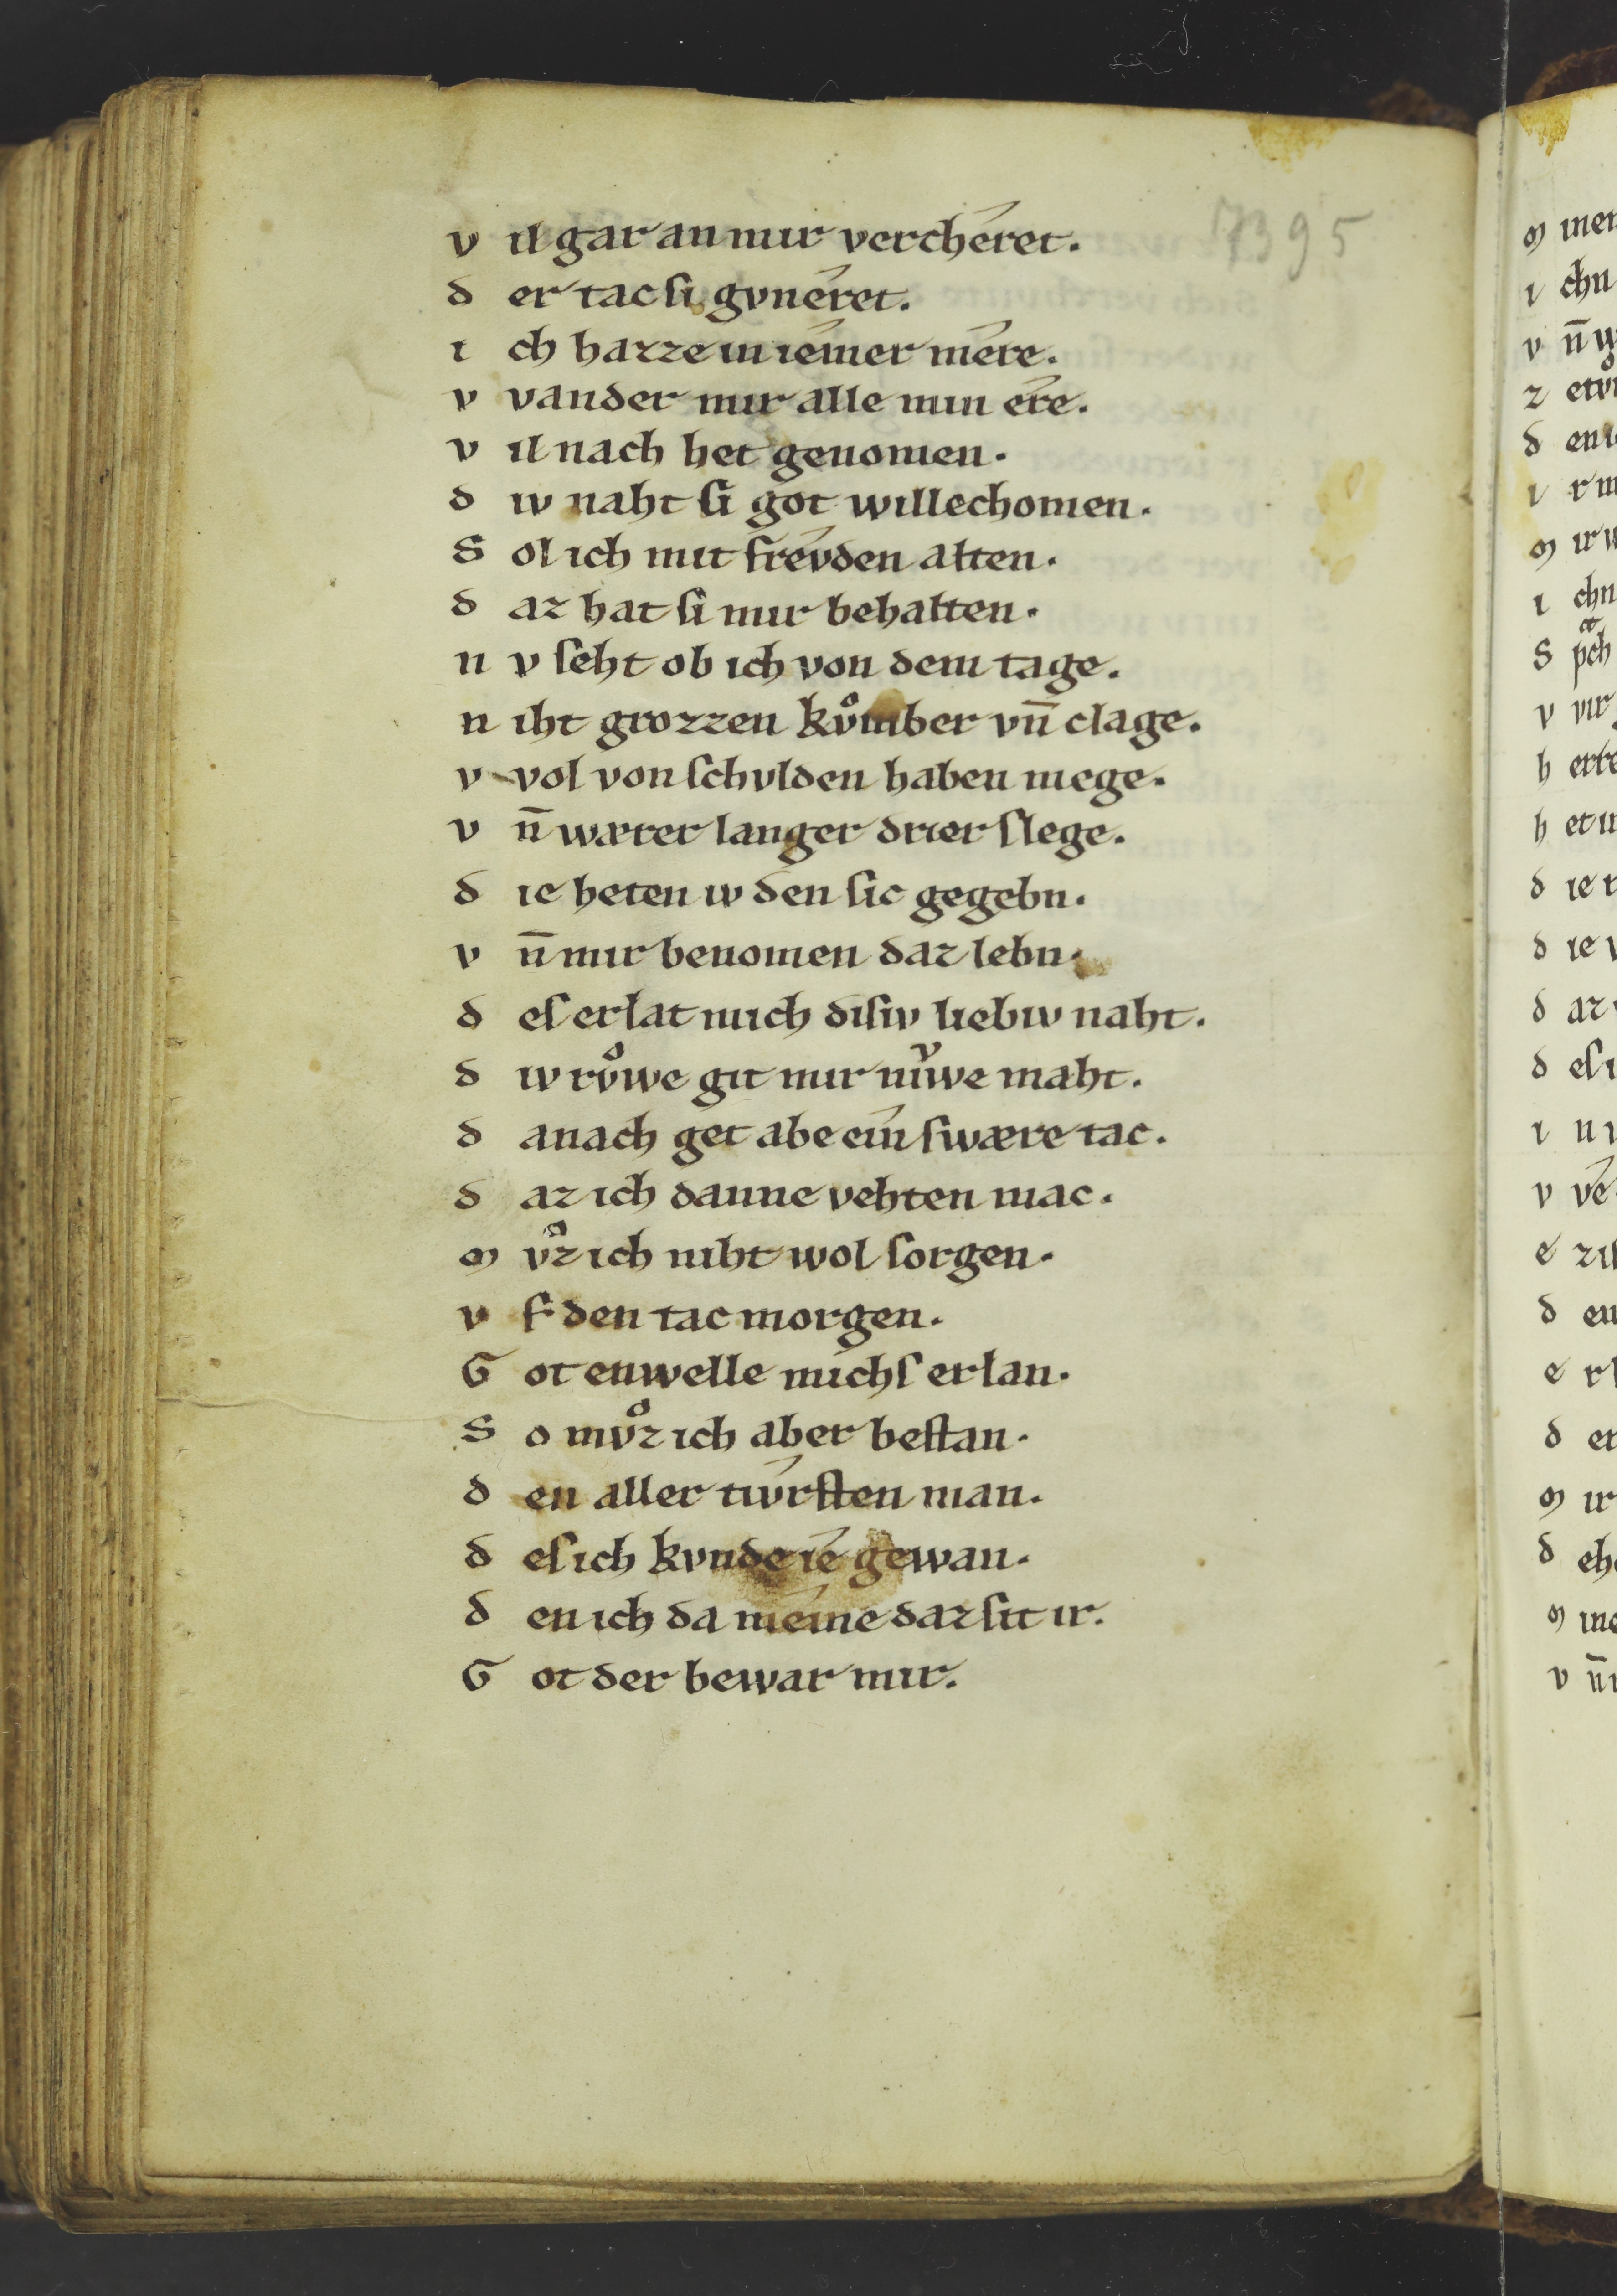 7395
v il gar an mir verchéret.
d er tac si gvnéret.
i ch hazze in iémer mére.
v vander mir alle min ére.
v il nach het genomen.
d iv naht si got willechomen.
S ol ich mit frévden alten.
d az hat si mir behalten.
n v seht ob ich von dem tage.
n iht grozzen kvͦmber vn̄ clage.
v vol von schvlden haben mege.
v n̄ wærer langer drier slege.
d ie heten iv den sic gegebn.
v n̄ mir benomen daz lebn.
d es erlat mich disiv liebiv naht.
d iv rvͦwe git mir niͮwe maht.
d anach get abe ein swære tac.
d az ich danne vehten mac.
m vͦz ich niht wol sorgen.
v f den tac morgen.
G ot enwelle michs erlan.
S o mvͦz ich aber bestan.
d en aller tívrsten man.
d es ich kvnde ié gewan.
d en ich da méine daz sit ir.
G ot der bewar mir.